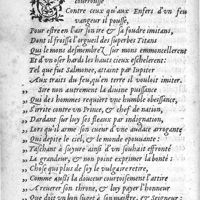 courrousse
Contre ceux qu'aux Enfers d'un feu
vangeur il pousse,
Pour estre en l'air son ire & sa foudre imitans,
Dont il froissa l'orgueil des superbes Titans
Que les mons desmembrez sur mons emmoncellerent
Et d'un oser hardi les hauts cieux eschelerent:
Tel que fut Salmonee, attaint par Jupiter
Aux traits du feu, qu'en terre il vouloit imiter.
Sire non autrement la divine puissance
„ Qui des hommes requiert une humble obeissance,
„ S'irrite contre un Prince, & chef de nation,
„ Dardant sur luy ses fleaux par indignation,
„ Lors qu'il arme son cueur d'une audace arrogante
„ Qui despite le ciel, & le monde espouvante:
„ Taschant à suyvre ainsi d'un souhait effronté
„ La grandeur, & non point exprimer la bonté:
„ Chose qui plus de soy le vulgaire retire,
„ Comme aussi la douceur courtoisement l'attire
„ A reverer son throne, & luy payer l'honneur
„ Que doit un bon suget à son maistre, & Seigneur: